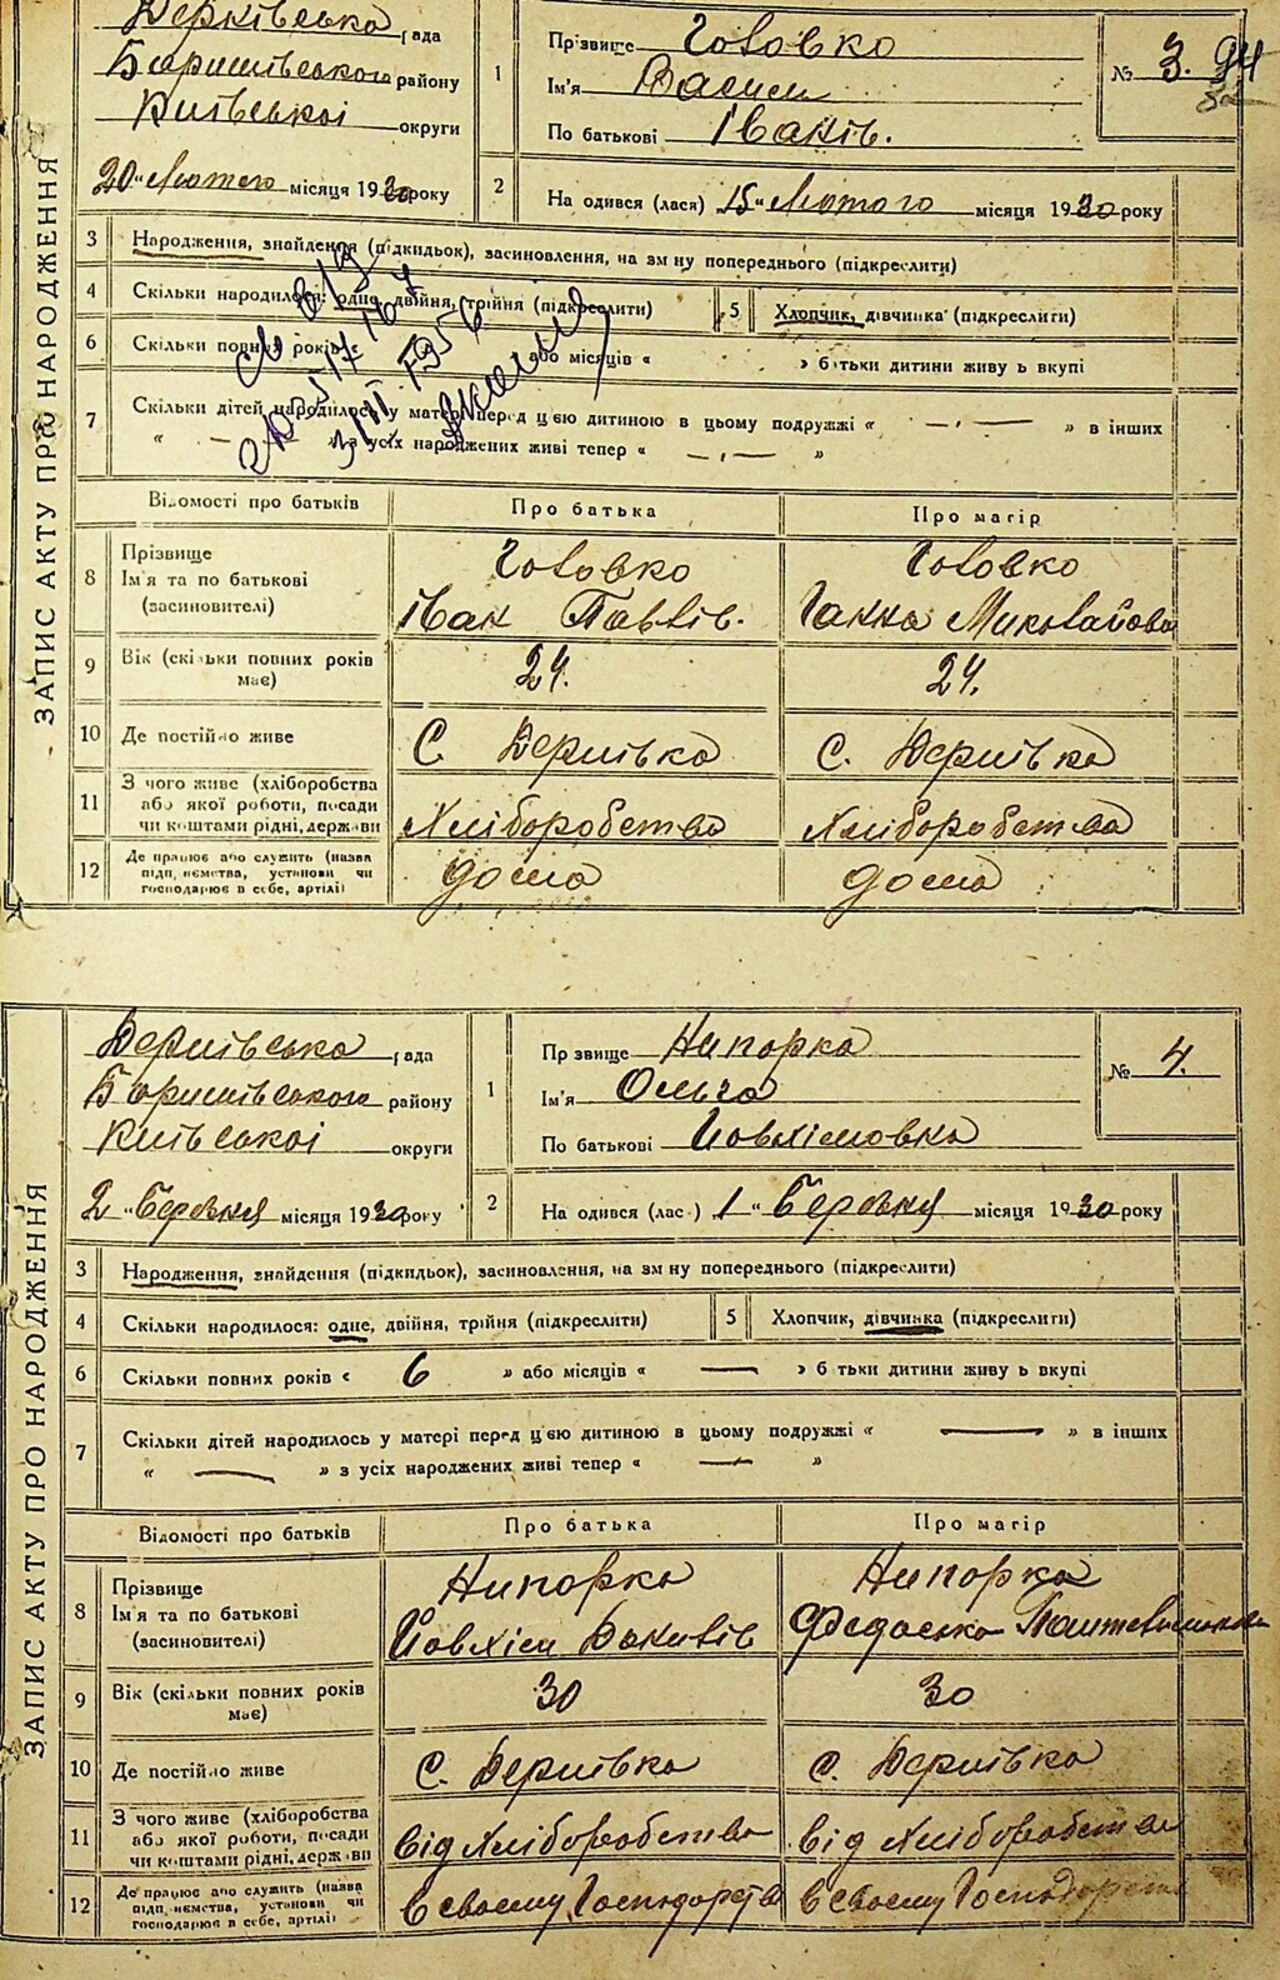 ЗАПИС АКТУ ПРО НАРОДЖЕННЯ
рада
Баришівського району
Київської округи
20 " Лютого місяця 1930 року
1
Прізвище Головко
Ім'я Васил
По батькові Іванів.
№ 3. 94
2
На одився (лася) „15" Лютого місяця 1930 року
3 Народження, знайдення (підкидьок), засиновлення, на зм ну попереднього (підкреслити)
4 Скільки народилося: одне, двійня, трійня (підкреслити)
5 Хлопчик, дівчинка (підкреслити)
6 Скільки повних років « або місяців « » б тьки дитини живу ь вкупі
7 Скільки дітей народилось у матері перед цією дитиною в цьому подружжі « — » в інших
« — » з усіх народжених живі тепер « — »
Відомості про батьків Про батька Про матір
8 Прізвище Головко Головко
Ім'я та по батькові Іван Павлів. Ганна Миколайова
(засиновителі)
9 Вік (скільки повних років має) 24. 24.
10 Де постійно живе С. Дернівка С. Дернівка
11 З чого живе (хліборобства
або якої роботи, посади
чи коштами рідні, держави Хліборобства Хліборобства
12 Де працює або служить (назва
підп, иємства, установи чи
господарює в себе, артілі) дома дома
ЗАПИС АКТУ ПРО НАРОДЖЕННЯ
Дернівська рада
Баришівського району
Київської округи
2 " Березня місяця 1930 року
1
Пр звище Нипорка
Ім'я Ольга
По батькові Йовхімовна
№ 4.
2
На одився (лас ) „1 " Березня місяця 1930 року
3 Народження, знайдення (підкидьок), засиновлення, на зм ну попереднього (підкреслити)
4 Скільки народилося: одне, двійня, трійня (підкреслити)
5 Хлопчик, дівчинка (підкреслити)
6 Скільки повних років « 6 » або місяців « — » б тьки дитини живу ь вкупі
7 Скільки дітей народилось у матері перед цією дитиною в цьому подружжі « — » в інших
« — » з усіх народжених живі тепер « — »
Відомості про батьків Про батька Про матір
8 Прізвище Нипорка Нипорка
Ім'я та по батькові Йовхім Федоська
(засиновителі)
9 Вік (скільки повних років має) 30 30
10 Де постійно живе С. Дернівка С. Дернівка
11 З чого живе (хліборобства
або якої роботи, посади
чи коштами рідні, держави від Хліборобства від Хліборобства
12 Де працює або служить (назва
підп, иємства, установи чи
господарює в себе, артілі) в своєму Господарстві в своєму Господарстві